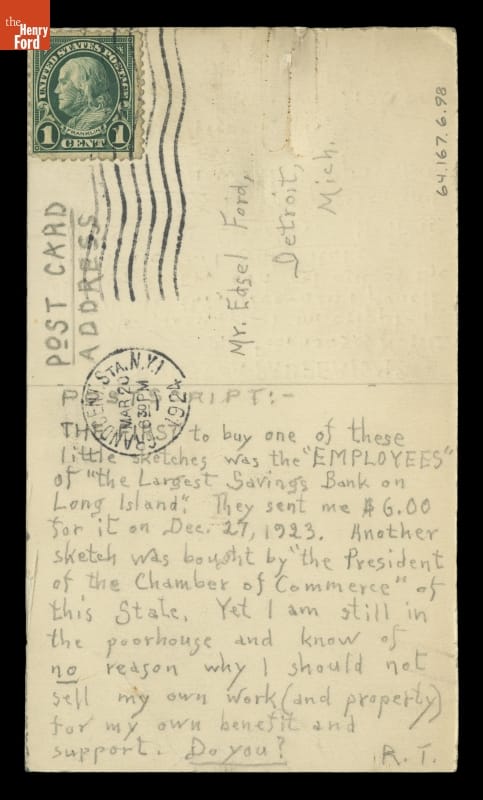 the
Henry
Ford
UNITED STATES POSTAGE
FRANKLIN
1 CENT 1
64.167.6.98
POST CARD
ADDRESS
Mr. Edsel Ford,
Detroit,
Mich.
GRAND CENT. STA. N.Y.
MAR 20
630 PM
1924
POSTSCRIPT:-
THE FIRST to buy one of these
little sketches was the "EMPLOYEES"
of "the Largest Savings Bank on
Long Island". They sent me $6.00
for it on Dec. 27, 1923. Another
sketch was bought by "the President
of the Chamber of Commerce" of
this State. Yet I am still in
the poorhouse and know of
no reason why I should not
sell my own work (and property)
for my own benefit and
support. Do you? R. T.